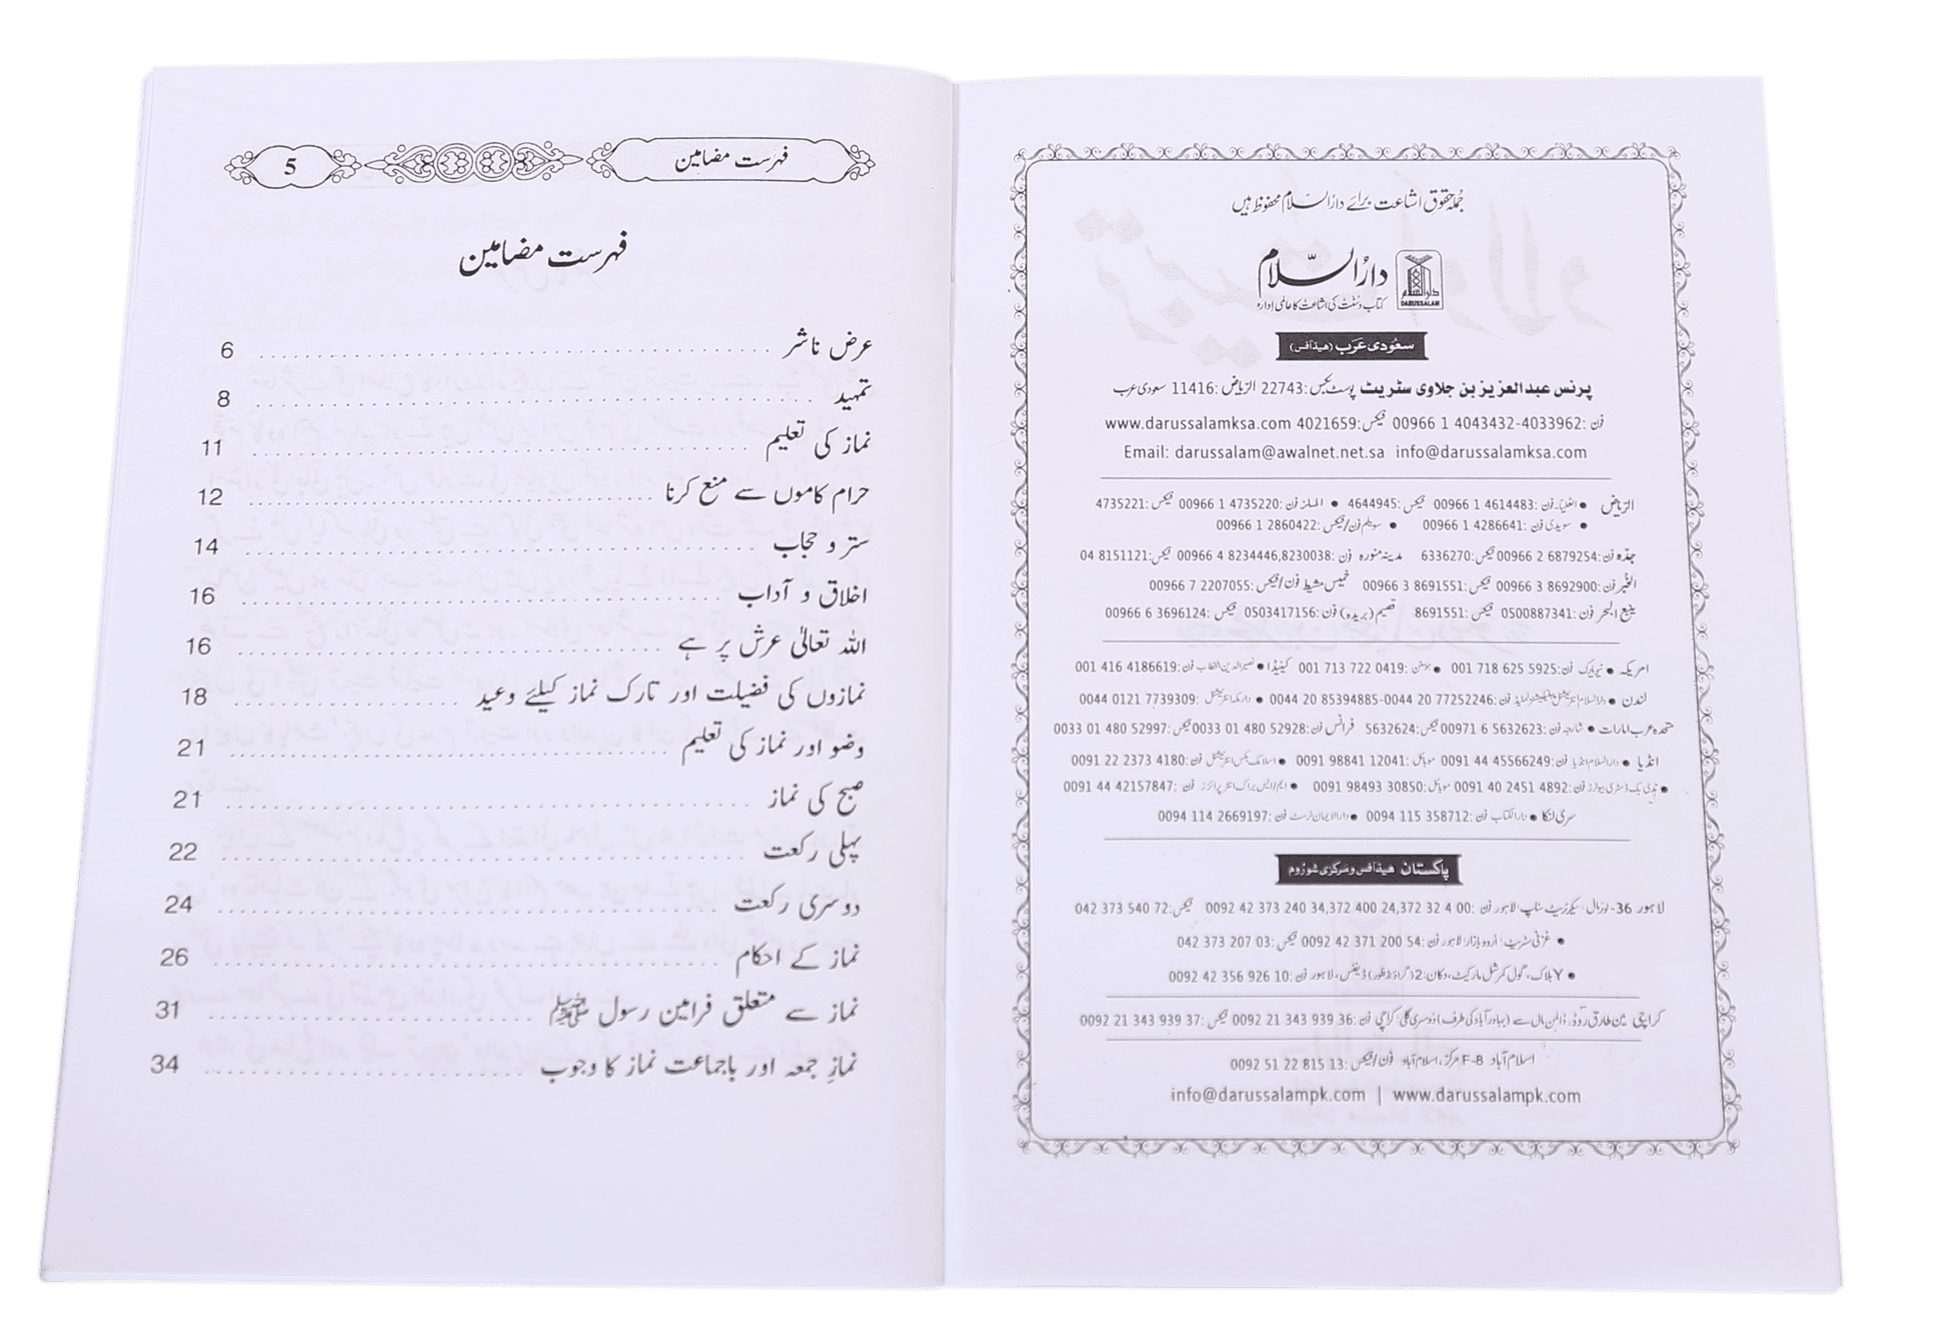 جُملہ حقوق اشاعت برائے دارُالسّلام محفوظ ہیں
دارُالسّلام
کتاب و سنت کی اشاعت کا عالمی ادارہ
دارالسلام
DARUSSALAM
سعُودی عَرَب (ہیڈآفس)
پرنس عبدالعزیز بن جلاوی سٹریٹ پوسٹ بکس: 22743 الریاض: 11416 سعودی عرب
فون: 00966 1 4043432-4033962 فیکس: 4021659 www.darussalamksa.com
Email: darussalam@awalnet.net.sa info@darussalamksa.com
الریاض • العلیا۔ فون: 00966 1 4614483 فیکس: 4644945 • الملز فون: 00966 1 4735220 فیکس: 4735221
• سویدی فون: 00966 1 4286641 • سویلم فون/فیکس: 00966 1 2860422
جدہ فون: 00966 2 6879254 فیکس: 6336270 مدینہ منورہ فون: 00966 4 8234446,8230038 فیکس: 04 8151121
الخبر فون: 00966 3 8692900 فیکس: 00966 3 8691551 خمیس مشیط فون/فیکس: 00966 7 2207055
ینبع البحر فون: 0500887341 فیکس: 8691551 قصیم (بریدہ) فون: 0503417156 فیکس: 00966 6 3696124
امریکہ • نیویارک فون: 001 718 625 5925 • ہوسٹن: 001 713 722 0419 کینیڈا • نصیرالدین الخطاب فون: 001 416 4186619
لندن • دارالسلام انٹرنیشنل پبلیکیشنز لمیٹڈ فون: 0044 20 77252246-0044 20 85394885 • دارمکہ انٹرنیشنل: 0044 0121 7739309
متحدہ عرب امارات • شارجہ فون: 00971 6 5632623 فیکس: 5632624 فرانس فون: 0033 01 480 52928 فیکس: 0033 01 480 52997
انڈیا • دارالسلام انڈیا فون: 0091 44 45566249 موبائل: 0091 98841 12041 • اسلامک بکس انٹرنیشنل فون: 0091 22 2373 4180
• ہُدیٰ بک ڈسٹری بیوٹرز فون: 0091 40 2451 4892 موبائل: 0091 98493 30850 • ایم ایس براک انٹرپرائزز فون: 0091 44 42157847
سری لنکا • دارالکتاب فون: 0094 115 358712 • دارالایمان ٹرسٹ فون: 0094 114 2669197
پاکستان ہیڈآفس ومرکزی شورُوم
لاہور 36- لوئرمال، سیکرٹریٹ سٹاپ، لاہور فون: 0092 42 373 240 34,372 400 24,372 32 4 00 فیکس: 042 373 540 72
• غزنی سٹریٹ، اُردو بازار، لاہور فون: 0092 42 371 200 54 فیکس: 042 373 207 03
• Y بلاک، گول کمرشل مارکیٹ، دکان: 2 (گراؤنڈ فلور) ڈیفنس، لاہور فون: 0092 42 356 926 10
کراچی مین طارق روڈ، ڈالمن مال سے (بہادرآباد کی طرف) دُوسری گلی کراچی فون: 0092 21 343 939 36 فیکس: 0092 21 343 939 37
اسلام آباد F-8 مرکز، اسلام آباد فون/فیکس: 0092 51 22 815 13
info@darussalampk.com | www.darussalampk.com
فہرست مضامین 5
فہرست مضامین
عرض ناشر 6
تمہید 8
نماز کی تعلیم 11
حرام کاموں سے منع کرنا 12
ستر و حجاب 14
اخلاق و آداب 16
اللہ تعالیٰ عرش پر ہے 16
نمازوں کی فضیلت اور تارک نماز کیلئے وعید 18
وضو اور نماز کی تعلیم 21
صبح کی نماز 21
پہلی رکعت 22
دوسری رکعت 24
نماز کے احکام 26
نماز سے متعلق فرامین رسول ﷺ 31
نمازِ جمعہ اور باجماعت نماز کا وجوب 34